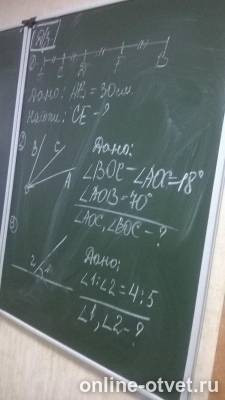 Д/з
1)
A C D E B
Дано: AB = 30 см
Найти: CE - ?
2)
B C
A
O
Дано:
∠BOC - ∠AOC = 18°
∠AOB = 70°
∠AOC, ∠BOC - ?
3)
2 1
Дано:
∠1:∠2 = 4:5
∠1, ∠2 - ?
online-otvet.ru